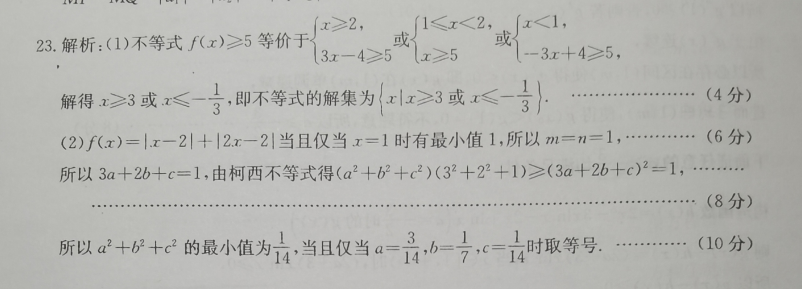 23.解析:(1)不等式 f(x)≥5 等价于{x≥2, 3x-4≥5 或{1≤x<2, x≥5 或{x<1, -3x+4≥5,
解得 x≥3 或 x≤-1/3,即不等式的解集为{x|x≥3 或 x≤-1/3}. …………………(4 分)
(2)f(x)=|x-2|+|2x-2|当且仅当 x=1 时有最小值 1,所以 m=n=1,…………(6 分)
所以 3a+2b+c=1,由柯西不等式得(a²+b²+c²)(3²+2²+1)≥(3a+2b+c)²=1, ………
……………………………………………………………………………………(8 分)
所以 a²+b²+c² 的最小值为1/14,当且仅当 a=3/14,b=1/7,c=1/14时取等号. …………(10 分)